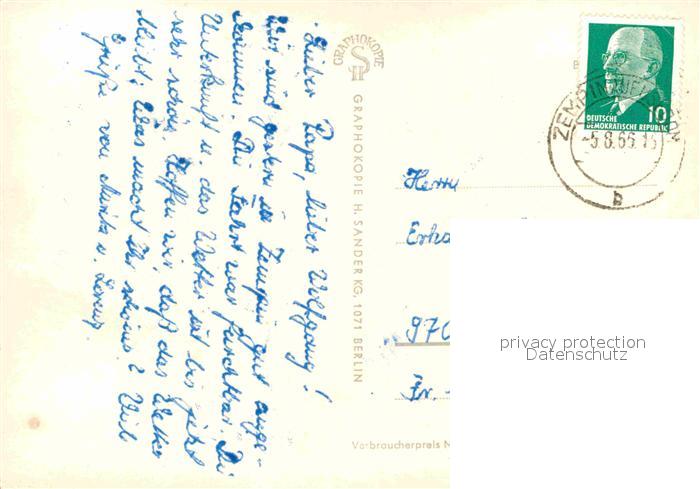 Lieber Papa, lieber Wolfgang!
Wir sind gestern in Zempin gut ange-
kommen. Die Fahrt war furchtbar. Die
Unterkunft u. das Wetter ist bis jetzt
sehr schön. Hoffen wir, daß das Wetter
bleibt. Was macht ihr schönes? Viele
Grüße von u. Lorenz.
GRAPHOKOPIE
GRAPHOKOPIE H. SANDER KG, 1071 BERLIN
10
DEUTSCHE
DEMOKRATISCHE REPUBLIK
-5.8.66.
b
Herrn
970
Verbraucherpreis
privacy protection
Datenschutz